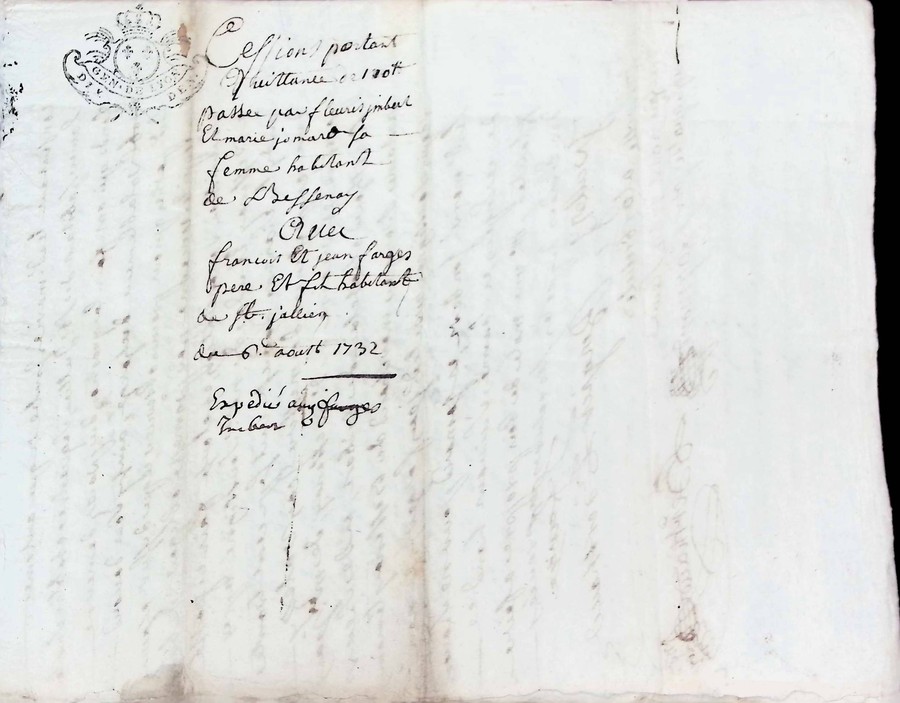 GEN. DE LYON
DIX DEN
Cessions portant
Quittance de 120tt
passée par fleuris jmbert
Et marie jomard sa
femme habitant
de Bessenay
Avec
francois Et jean farges
pere Et fils habitant
de St. jullien
du 6e. aoust 1732
Expédié aux farges
Imbert